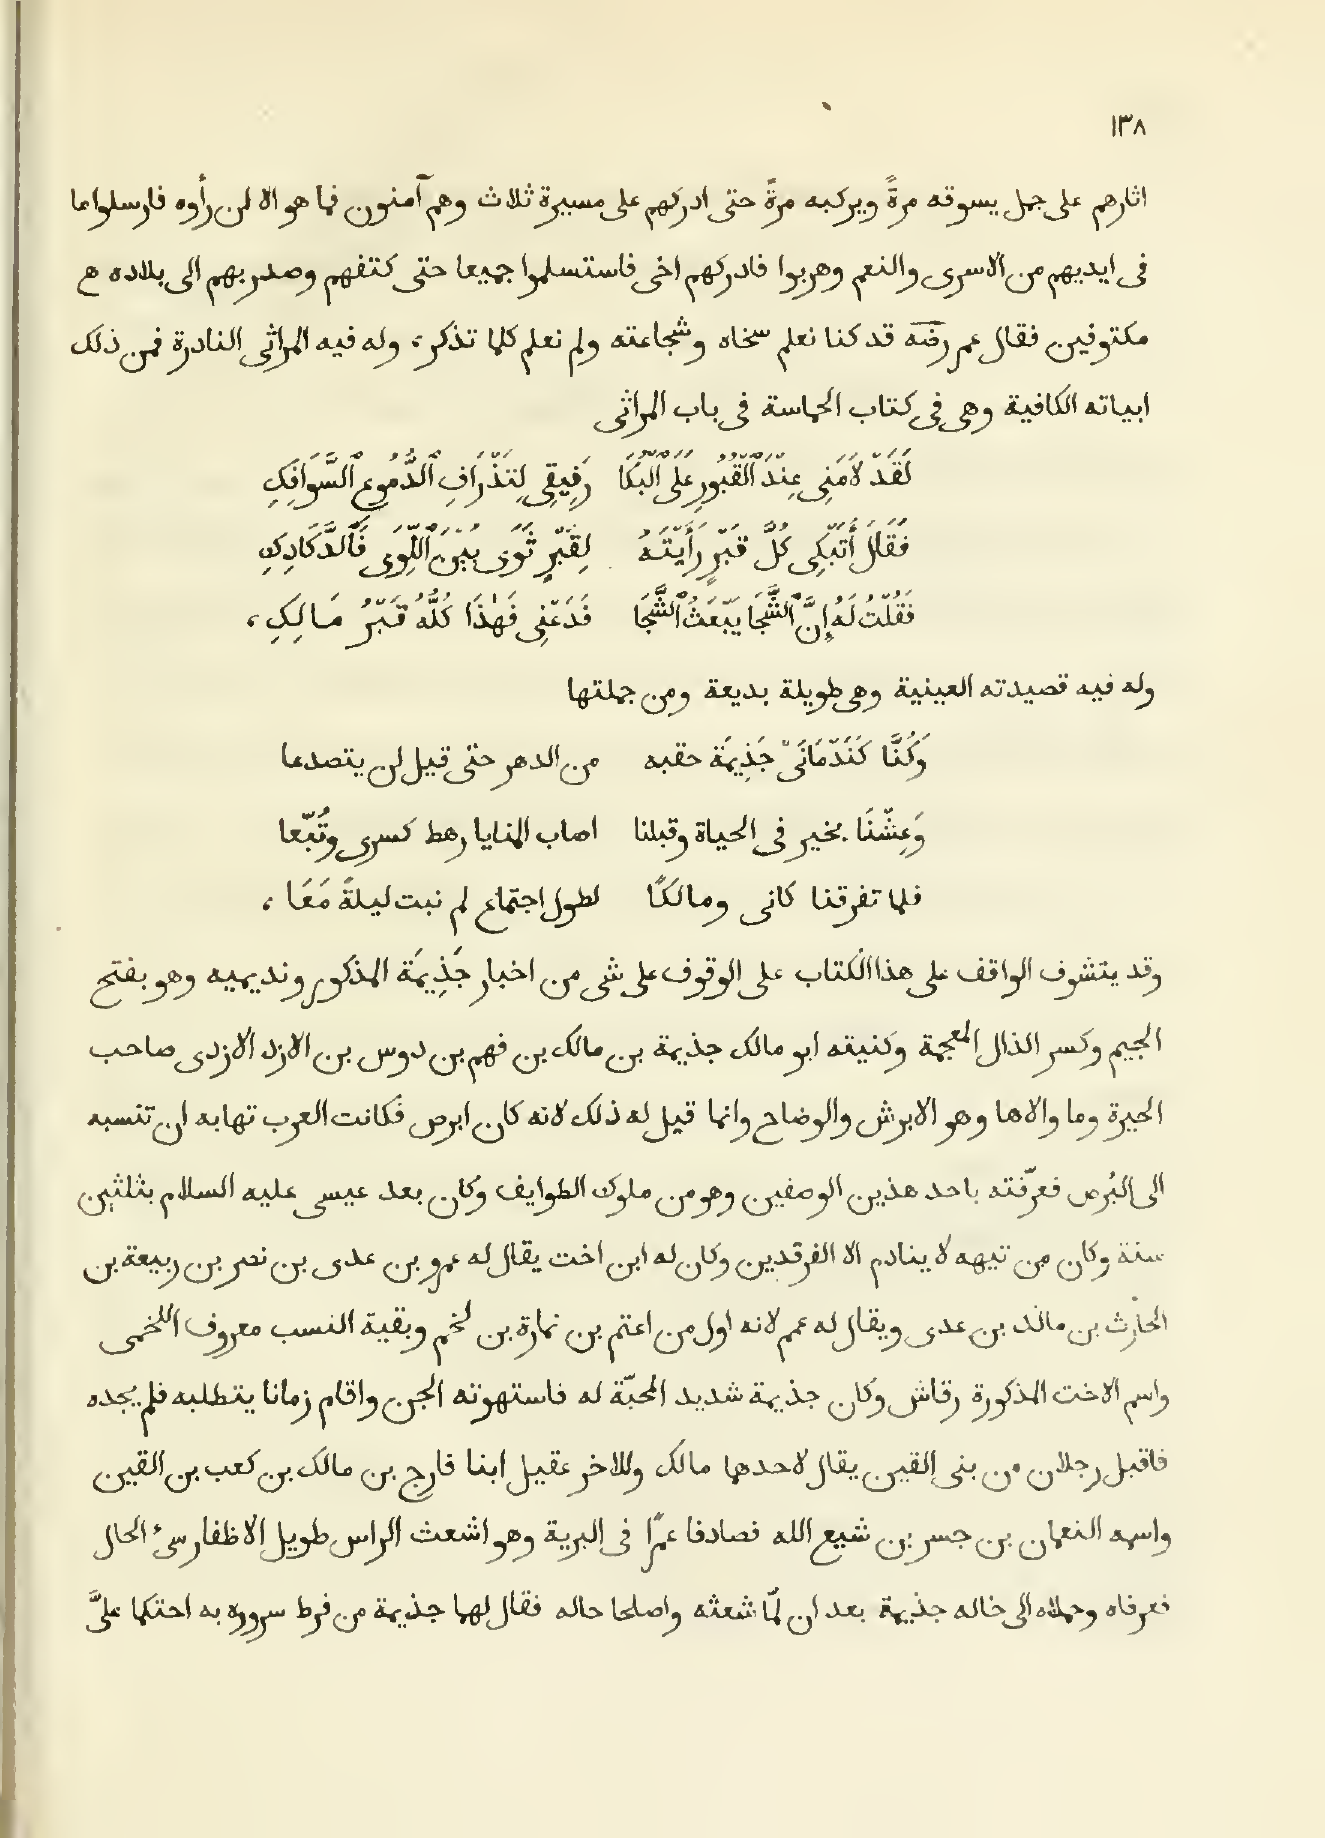 ١٣٨
اثارهم على جمل يسوقه مرةً ويركبه مرةً حتى ادركهم على مسيرة ثلاث وهم آمنون فما هو الا ان رأوه فارسلوا ما
فى ايديهم من الاسرى والنعم وهربوا فادركهم اخى فاستسلموا جميعا حتى كتفهم وصدر بهم الى بلاده هم
مكتوفين فقال عمر رضه قد كنا نعلم سخاه وشجاعته ولم نعلم كلما تذكر، وله فيه المراثى النادرة فمن ذلك
ابياته الكافية وهى فى كتاب الحماسة فى باب المراثى
لَقَدْ لَامَنِى عِنْدَ ٱلْقُبُورِ عَلَى ٱلْبُكَا رَفِيقِى لِتَذْرَافِ ٱلدُّمُوعِ ٱلسَّوَافِكِ
فَقَالَ أَتَبْكِى كُلَّ قَبْرٍ رَأَيْتَهُ لِقَبْرٍ ثَوَى بَيْنَ ٱللِّوَى فَٱلدَّكَادِكِ
فَقُلْتُ لَهُ إِنَّ ٱلشَّجَا يَبْعَثُ ٱلشَّجَا فَدَعْنِى فَهٰذَا كُلُّهُ قَبْرُ مَالِكِ،
وله فيه قصيدته العينية وهى طويلة بديعة ومن جملتها
وَكُنَّا كَنَدْمَانَىْ جَذِيمَة حقبه من الدهر حتى قيل لن يتصدعا
وَعِشْنَا بخير فى الحياة وقبلنا اصاب المنايا رهط كسرى وتُبّعا
فلما تفرقنا كانى ومالكًا لطول اجتماع لم نبت ليلةً مَعَا،
وقد يتشوف الواقف على هذا الكتاب على الوقوف على شى من اخبار جَذِيمَة المذكور ونديميه وهو بفتح
الجيم وكسر الذال المعجمة وكنيته ابو مالك جذيمة بن مالك بن فهم بن دوس بن الازد الازدى صاحب
الحيرة وما والاها وهو الابرش والوضاح وانما قيل له ذلك لانه كان ابرص فكانت العرب تهابه ان تنسبه
الى البُرص فعرّفته باحد هذين الوصفين وهو من ملوك الطوايف وكان بعد عيسى عليه السلام بثلثين
سنة وكان من تيهه لا ينادم الا الفرقدين وكان له ابن اخت يقال له عمرو بن عدى بن نصر بن ربيعة بن
الحارث بن مالك بن عدى ويقال له عمم لانه اول من اعتم بن نمارة بن لخم وبقية النسب معروف اللخمى
واسم الاخت المذكورة رقاش وكان جذيمة شديد المحبّة له فاستهوته الجن واقام زمانا يتطلبه فلم يجده
فاقبل رجلان من بنى القين يقال لاحدهما مالك وللاخر عقيل ابنا فارج بن مالك بن كعب بن القين
واسمه النعمان بن جسر بن شيع الله فصادفا عمرًا فى البرية وهو اشعث الراس طويل الاظفار سىء الحال
فعرفاه وحملاه الى خاله جذيمة بعد ان لمّا شعثه واصلحا حاله فقال لهما جذيمة من فرط سروره به احتكما علىَّ